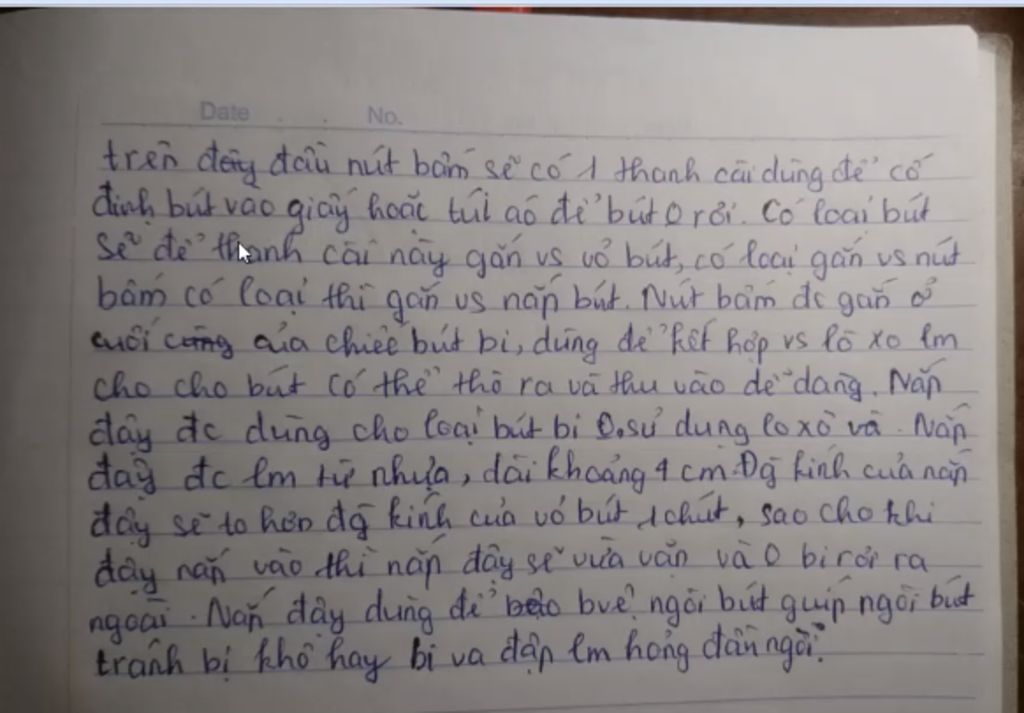 Date . . No.
trên đầu nút bấm sẽ có 1 thanh cài dùng để cố
định bút vào giấy hoặc túi áo để bút 0 rơi. Có loại bút
sẽ để thanh cài này gắn vs vỏ bút, có loại gắn vs nút
bấm có loại thì gắn vs nắp bút. Nút bấm đc gắn ở
cuối cùng của chiếc bút bi, dùng để kết hợp vs lò xo lm
cho cho bút có thể thò ra và thu vào dễ dàng. Nắp
đậy đc dùng cho loại bút bi 0 sử dụng lo xò và. Nắp
đậy đc lm từ nhựa, dài khoảng 4 cm. Đg kính của nắp
đậy sẽ to hơn đg kính của vỏ bút 1 chút, sao cho khi
đậy nắp vào thì nắp đậy sẽ vừa vặn và 0 bị rơi ra
ngoài. Nắp đậy dùng để bvệ ngòi bút guíp ngòi bút
tránh bị khô hay bị va đập lm hỏng đầu ngòi.